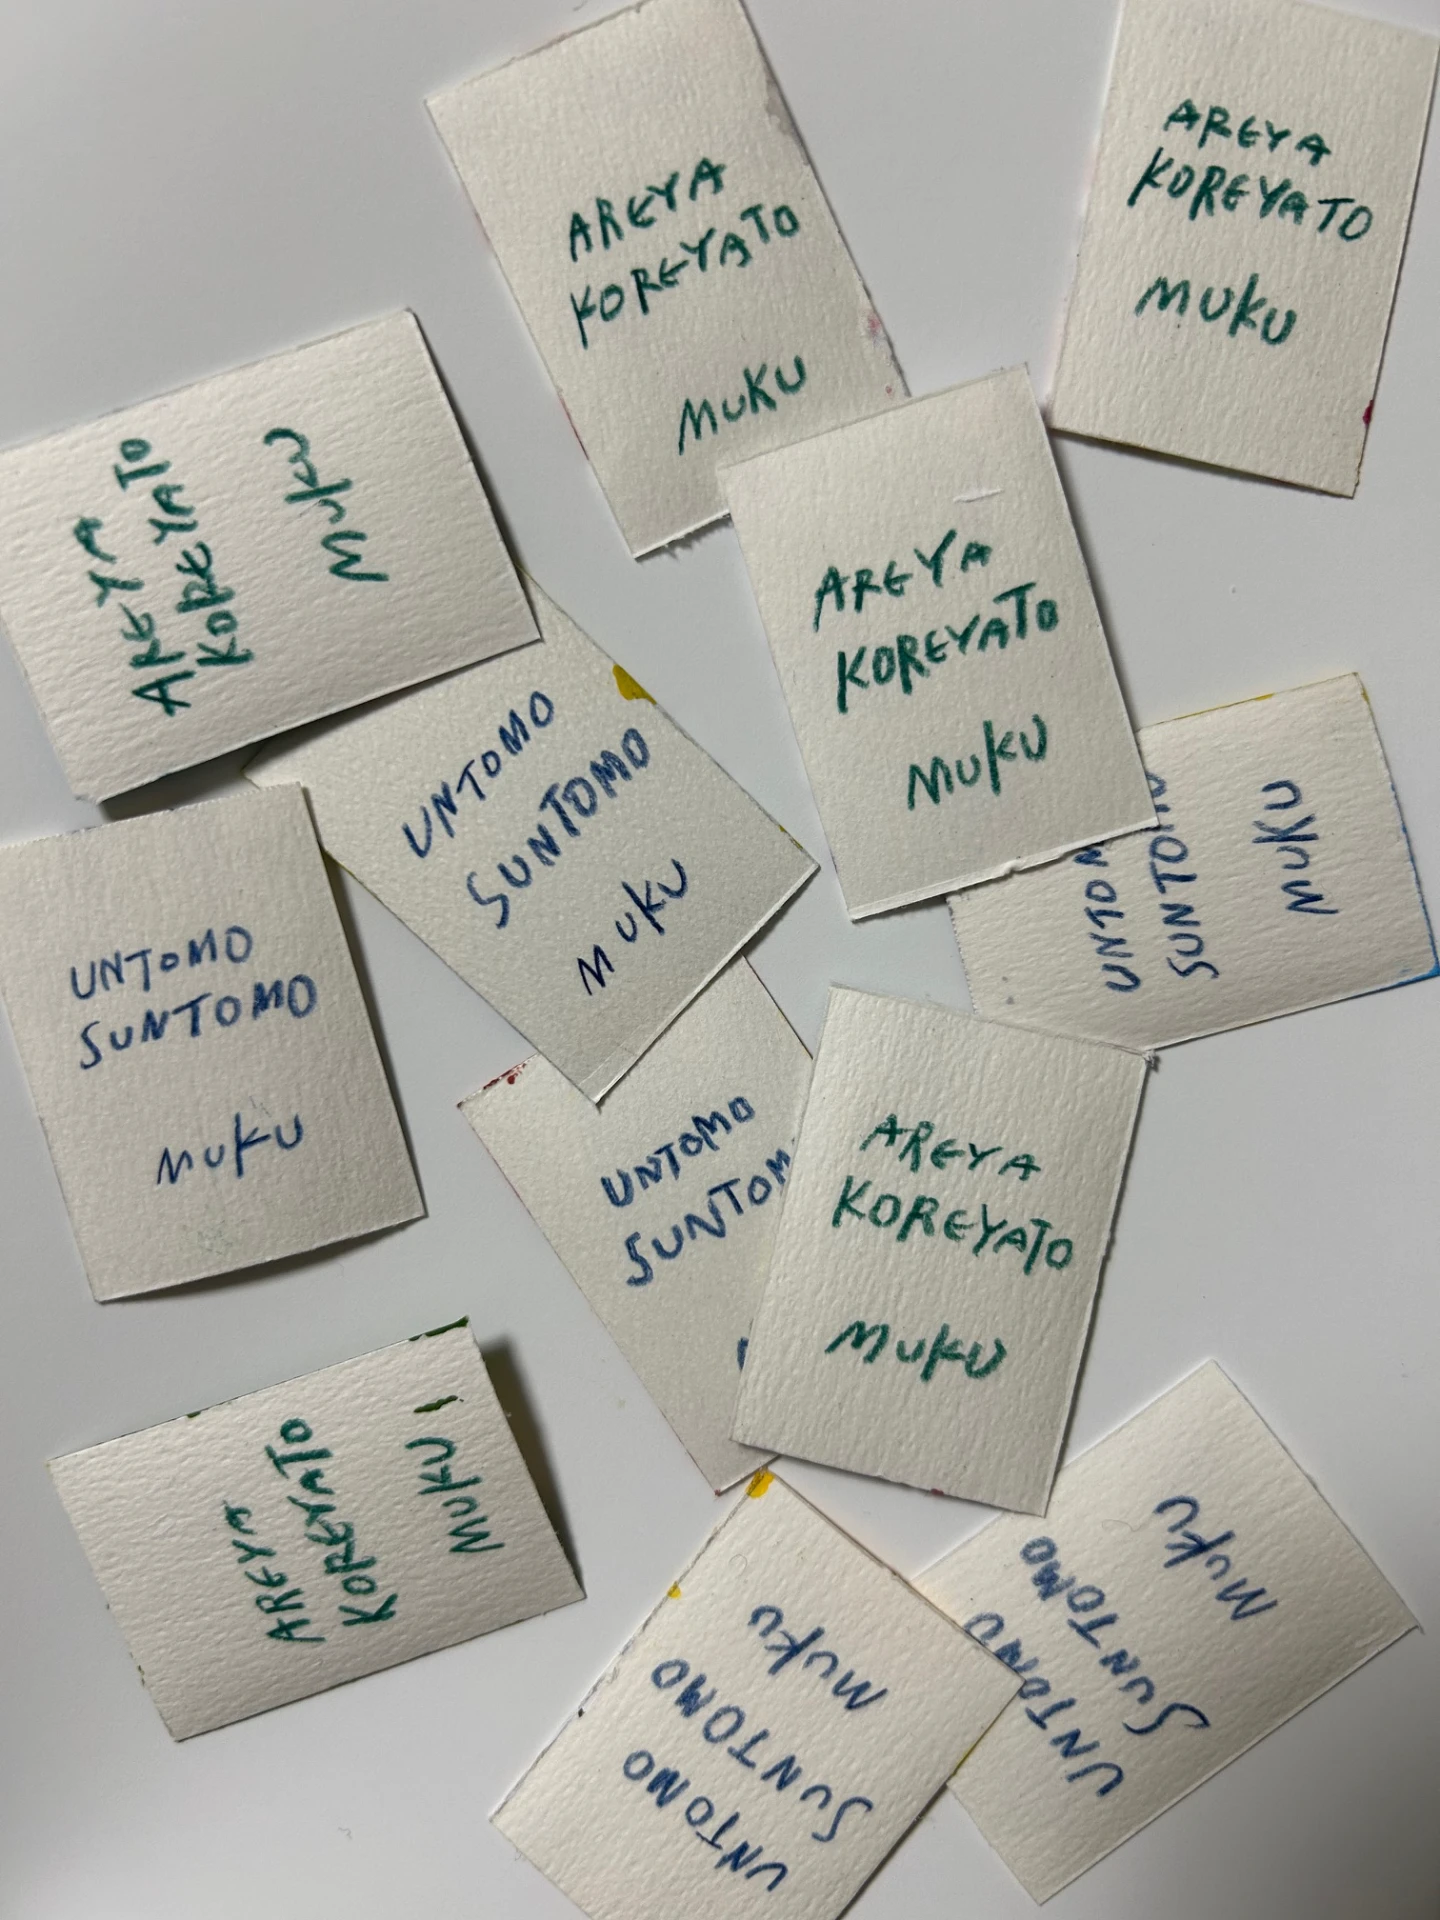 AREYA
KOREYATO
MUKU
AREYA
KOREYATO
MUKU
AREYA
KOREYATO
MUKU
AREYA
KOREYATO
MUKU
UNTOMO
SUNTOMO
MUKU
UNTOMO
SUNTOMO
MUKU
UNTOM
SUNTOMO
MUKU
UNTOMO
SUNTOM
AREYA
KOREYATO
MUKU
AREYA
KOREYATO
MUKU
UNTOMO
SUNTOMO
MUKU
UNTOMO
SUNTOMO
MUKU